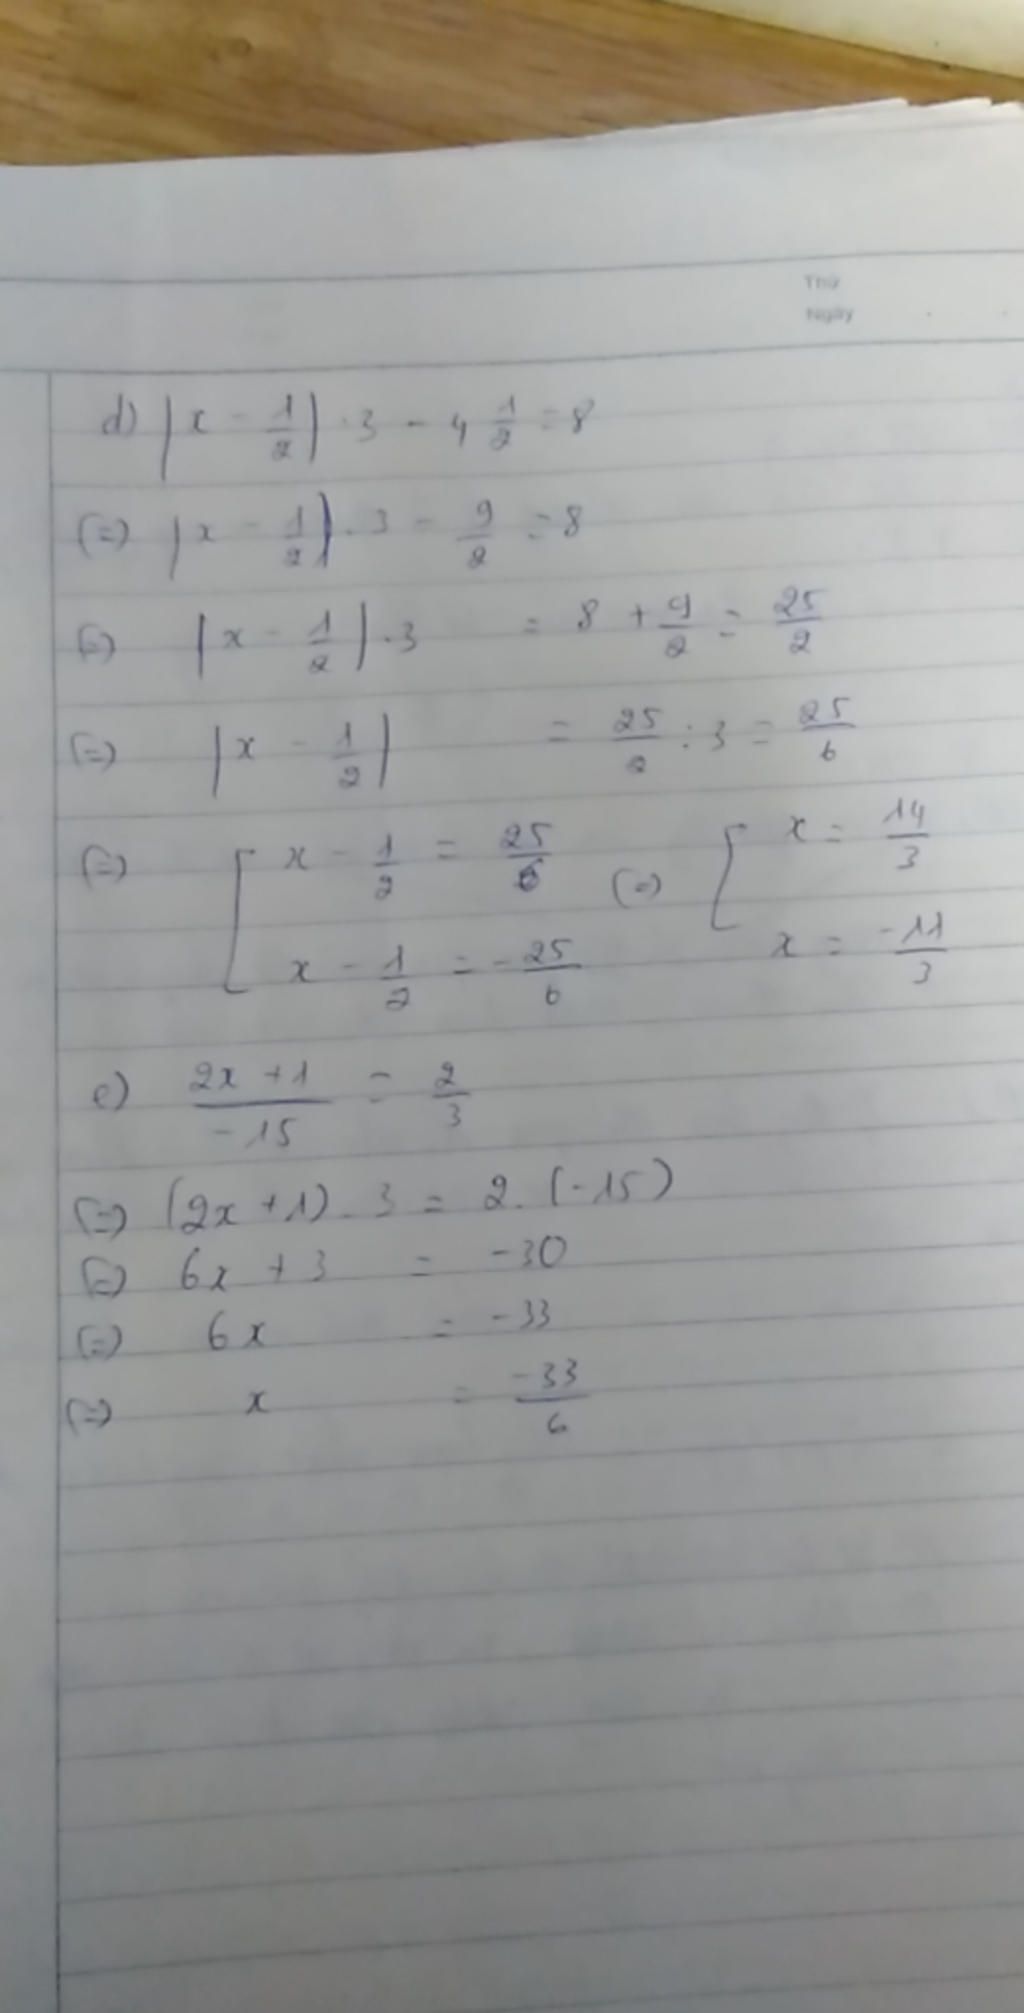 Thứ
Ngày
d) |x - 1/2| . 3 - 4 1/2 = 8
(=) |x - 1/2| . 3 - 9/2 = 8
(=) |x - 1/2| . 3 = 8 + 9/2 = 25/2
(=) |x - 1/2| = 25/2 : 3 = 25/6
(=) [ x - 1/2 = 25/6 (=) [ x = 14/3
x - 1/2 = - 25/6 x = -11/3
e) 2x + 1 / -15 = 2/3
(=) (2x + 1) . 3 = 2 . (-15)
(=) 6x + 3 = -30
(=) 6x = -33
(=) x = -33/6